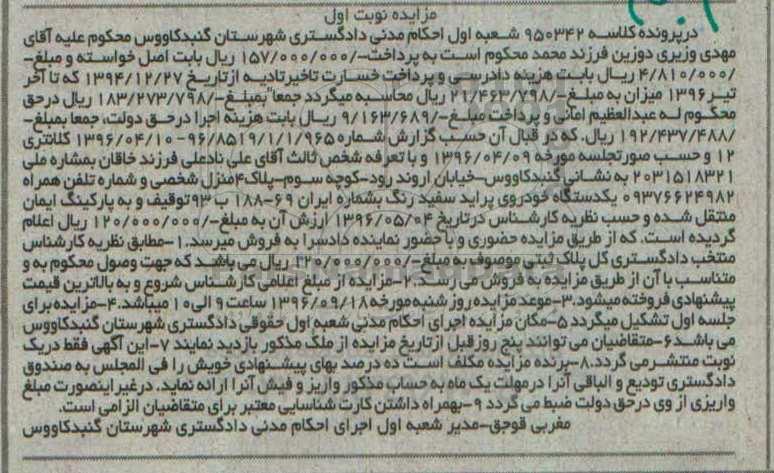 مزایده نوبت اول
درپرونده کلاسه ۹۵۰۳۴۲ شعبه اول احکام مدنی دادگستری شهرستان گنبدکاووس محکوم علیه آقای
مهدی وزیری دوزین فرزند محمد محکوم است به پرداخت-/۱۵۷/۰۰۰/۰۰۰ ریال بابت اصل خواسته و مبلغ-
/۴/۸۱۰/۰۰۰ ریال بابت هزینه دادرسی و پرداخت خسارت تاخیرتادیه ازتاریخ ۱۳۹۴/۱۲/۲۷ که تا آخر
تیر۱۳۹۶ میزان به مبلغ-/۲۱/۴۶۳/۷۹۸ ریال محاسبه میگردد جمعا"بمبلغ-/۱۸۳/۲۷۳/۷۹۸ ریال درحق
محکوم له عبدالعظیم امانی و پرداخت مبلغ-/۹/۱۶۳/۶۸۹ ریال بابت هزینه اجرا درحق دولت، جمعا بمبلغ-
/۱۹۲/۴۳۷/۴۸۸ ریال. که در قبال آن حسب گزارش شماره ۹۶/۸۵۱۹/۱/۱/۹۶۵-۱۳۹۶/۰۴/۱۰ کلانتری
۱۲ و حسب صورتجلسه مورخه ۱۳۹۶/۰۴/۰۹ و با تعرفه شخص ثالث آقای علی نادعلی فرزند خاقان بمشاره ملی
۲۰۳۱۵۱۸۳۲۱ به نشانی گنبدکاووس-خیابان اروند رود-کوچه سوم-پلاک۴منزل شخصی و شماره تلفن همراه
۰۹۳۷۶۶۲۴۹۸۲ یکدستگاه خودروی پراید سفید رنگ بشماره ایران ۶۹-۱۸۸ ب ۹۳توقیف و به پارکینگ ایمان
منتقل شده و حسب نظریه کارشناس درتاریخ ۱۳۹۶/۰۵/۰۴ ارزش آن به مبلغ-/۱۲۰/۰۰۰/۰۰۰ ریال اعلام
گردیده است. که از طریق مزایده حضوری و با حضور نماینده دادسرا به فروش میرسد.۱-مطابق نظریه کارشناس
منتخب دادگستری کل پلاک ثبتی موصوف به مبلغ-/۱۲۰/۰۰۰/۰۰۰ ریال می باشد که جهت وصول محکوم به و
متناسب با آن از طریق مزایده به فروش می رسد.۲-مزایده از مبلغ اعلامی کارشناس شروع و به بالاترین قیمت
پیشنهادی فروخته میشود.۳-موعد مزایده روز شنبه مورخه ۱۳۹۶/۰۹/۱۸ ساعت ۹ الی۱۰ میباشد.۴-مزایده برای
جلسه اول تشکیل میگردد ۵-مکان مزایده اجرای احکام مدنی شعبه اول حقوقی دادگستری شهرستان گنبدکاووس
می باشد۶-متقاضیان می توانند پنج روزقبل ازتاریخ مزایده از ملک مذکور بازدید نمایند ۷-این آگهی فقط دریک
نوبت منتشرمی گردد.۸-برنده مزایده مکلف است ده درصد بهای پیشنهادی خویش را فی المجلس به صندوق
دادگستری تودیع و الباقی آنرا درمهلت یک ماه به حساب مذکور واریز و فیش آنرا ارائه نماید. درغیراینصورت مبلغ
واریزی از وی درحق دولت ضبط می گردد ۹-بهمراه داشتن کارت شناسایی معتبر برای متقاضیان الزامی است.
مغربی قوجق-مدیر شعبه اول اجرای احکام مدنی دادگستری شهرستان گنبدکاووس